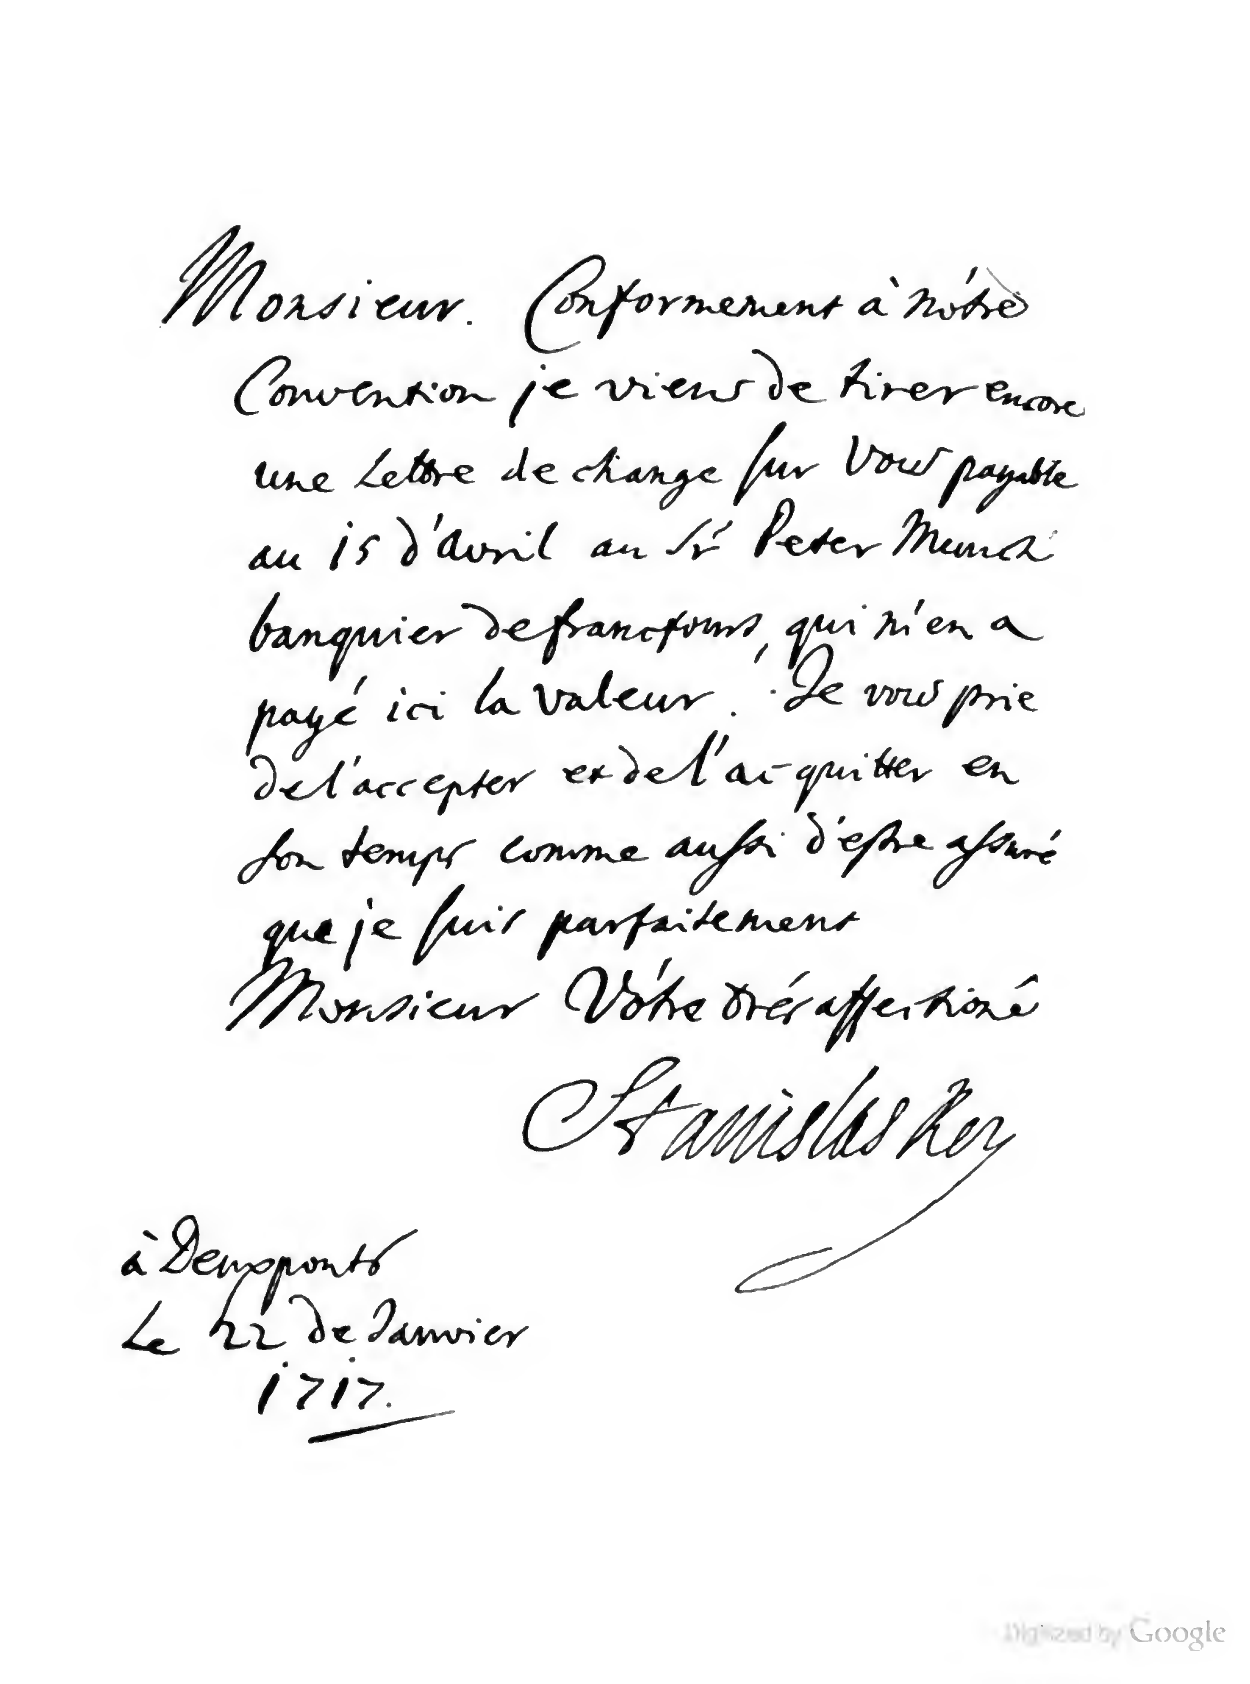 Monsieur. Conformement à nótre
Convention je viens de tirer encore
une Lettre de change sur Vous payable
au 15 d'Avril au Sr. Peter Munch
banquier de francfourt, qui m'en a
payé ici la valeur. Je vous prie
de l'accepter et de l'acquitter en
son temps comme aussi d'estre assuré
que je suis parfaitement
Monsieur Vótre trés affectioné
Stanislas Roy
à Deuxponts
Le 22 de Janvier
1717.
Digitized by Google